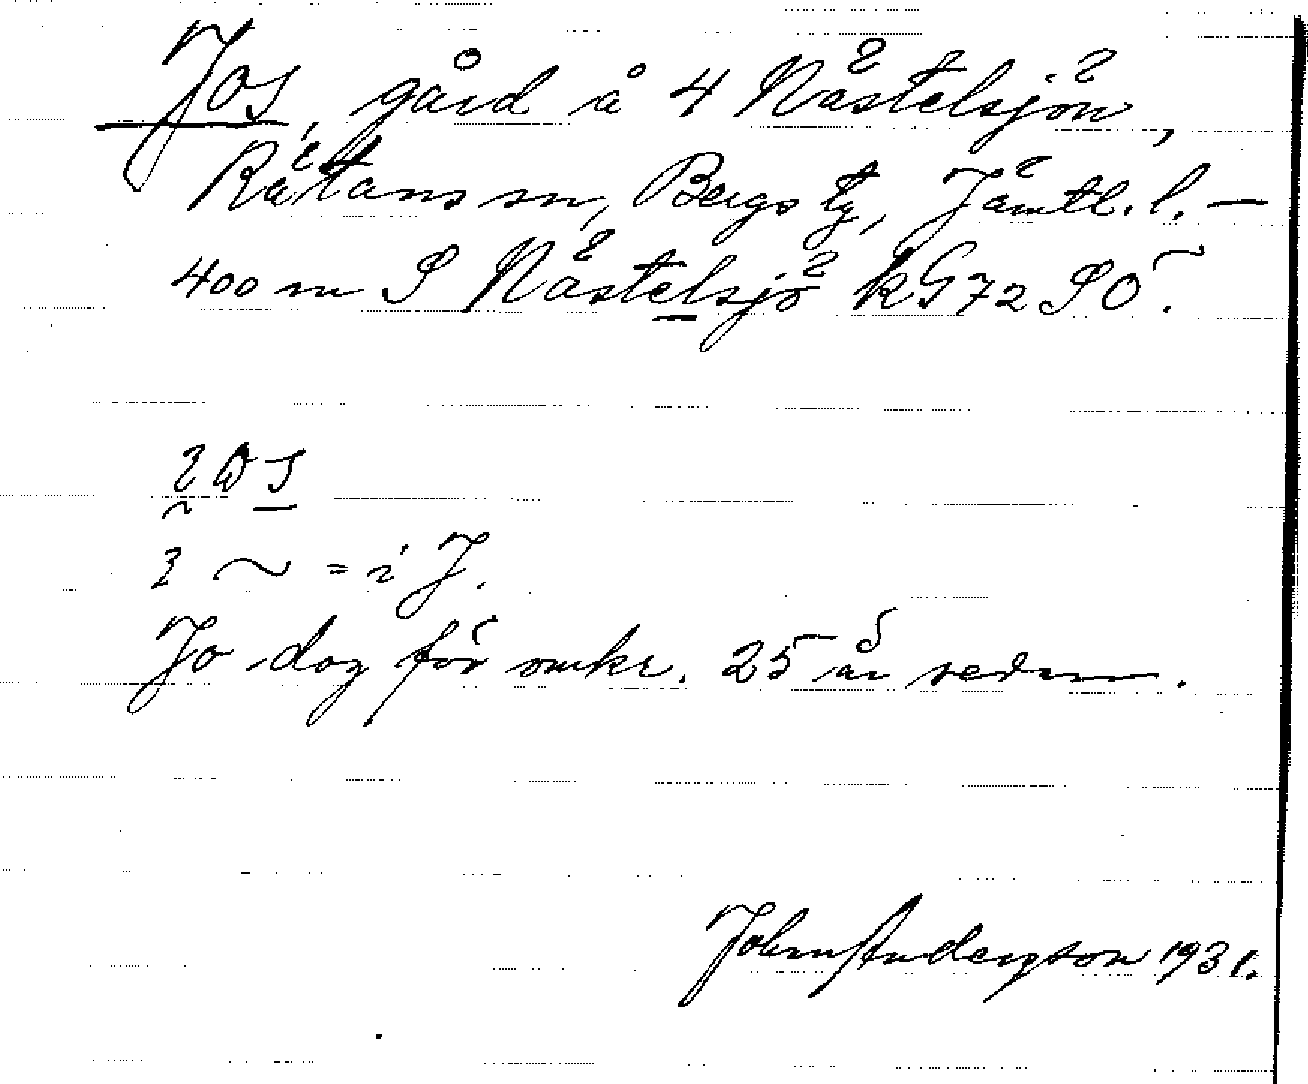 Jos, gård å 4 Nästelsjön,
Rätans sn, Bergs tg, Jämtl. l. —
400 m S Nästelsjö k G72 SO.
= i J.
Jo dog för omkr. 25 år sedan.
John Anderzson 1931.